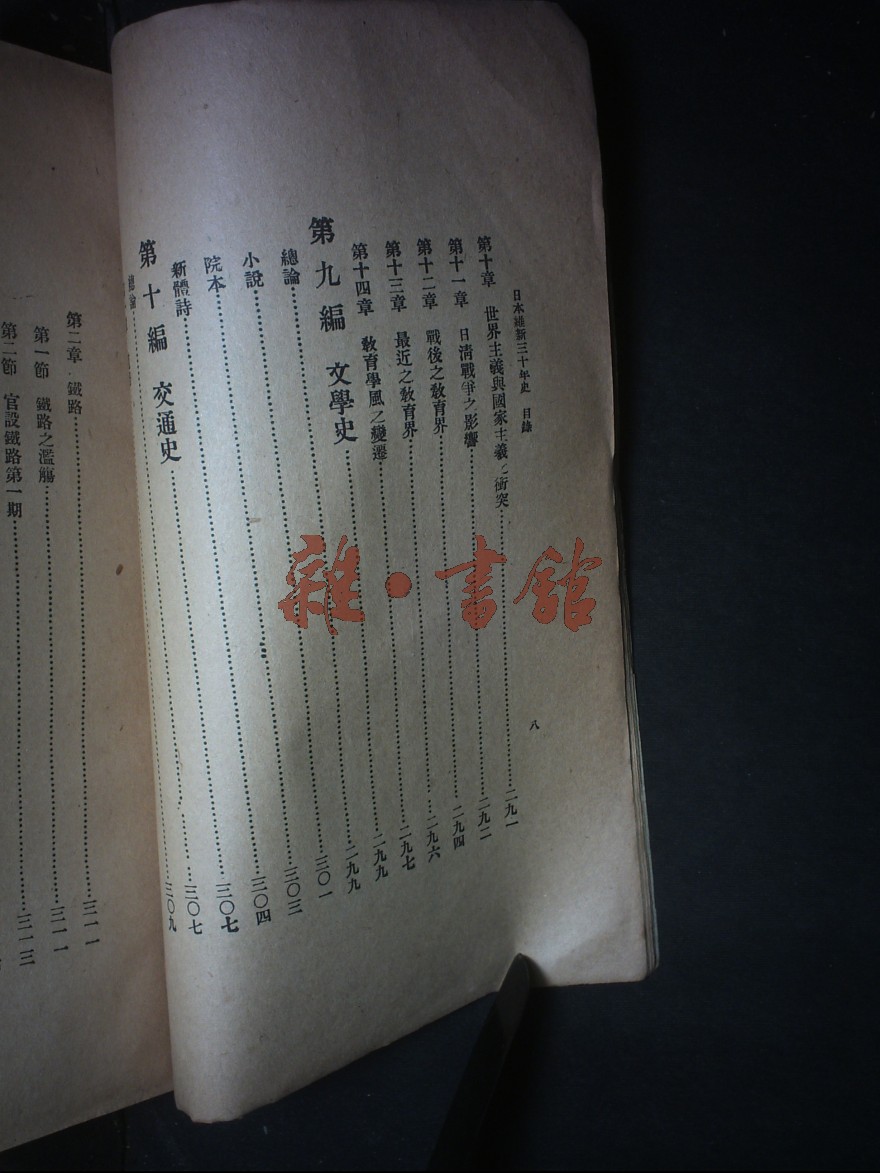 日本維新三十年史 目錄
八
第十章 世界主義與國家主義之衝突
第十一章 日清戰爭之影響
第十二章 戰後之教育界
第十三章 最近之教育界
第十四章 教育學風之變遷
第九編 文學史
總論
小說
院本
新體詩
第十編 交通史
總論
二九一
二九二
二九四
二九六
二九七
二九九
二九九
三〇一
三〇三
三〇四
三〇七
三〇七
三〇九
第二章 鐵路
三一一
第一節 鐵路之濫觴
三一一
第二節 官設鐵路第一期
三一三
雜·書館